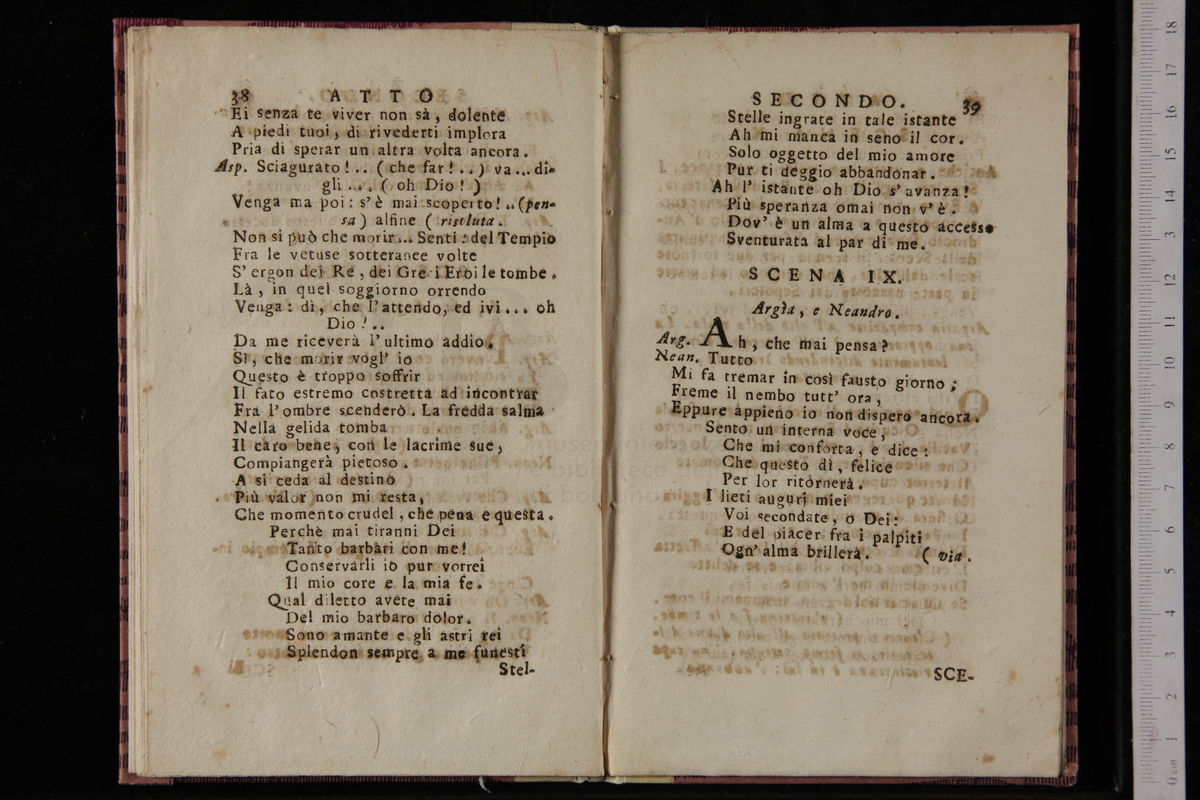 38 ATTO
Ei senza te viver non sà, dolente
A piedi tuoi, di rivederti implora
Pria di sperar un altra volta ancora.
Asp. Sciagurato!.. (che far!..) va... di-
gli... (oh Dio!)
Venga ma poi: s'è mai scoperto!.. (pen-
sa) alfine (risoluta.
Non si può che morir... Senti: del Tempio
Fra le vetuse sotteranee volte
S'ergon dei Re, dei Greci Eroi le tombe.
Là, in quel soggiorno orrendo
Venga: dì, che l'attendo, ed ivi... oh
Dio!..
Da me riceverà l'ultimo addio.
Sì, che morir vogl'io
Questo è troppo soffrir
Il fato estremo costretta ad incontrar
Fra l'ombre scenderò. La fredda salma
Nella gelida tomba
Il caro bene, con le lacrime sue,
Compiangerà pietoso.
A si ceda al destino
Più valor non mi resta,
Che momento crudel, che pena e questa.
Perchè mai tiranni Dei
Tanto barbàri con me!
Conservarli iò pur vorrei
Il mio core e la mia fe.
Qual diletto avete mai
Del mio barbaro dolor.
Sono amante e gli astri rei
Splendon sempre a me funesti
Stel-
SECONDO. 39
Stelle ingrate in tale istante
Ah mi manca in seno il cor.
Solo oggetto del mio amore
Pur ti deggio abbandonar.
Ah l'istante oh Dio s'avanza!
Più speranza omai non v'è.
Dov'è un alma a questo accesso
Sventurata al par di me.
SCENA IX.
Argìa, e Neandro.
Arg. Ah, che mai pensa?
Nean. Tutto
Mi fa tremar in così fausto giorno;
Freme il nembo tutt'ora,
Eppure appieno io non dispero ancora.
Sento un interna voce,
Che mi conforta, e dice:
Che questo dì, felice
Per lor ritornerà.
I lieti augurj miei
Voi secondate, o Dei:
E del piacer fra i palpiti
Ogn'alma brillerà. (via.
SCE-